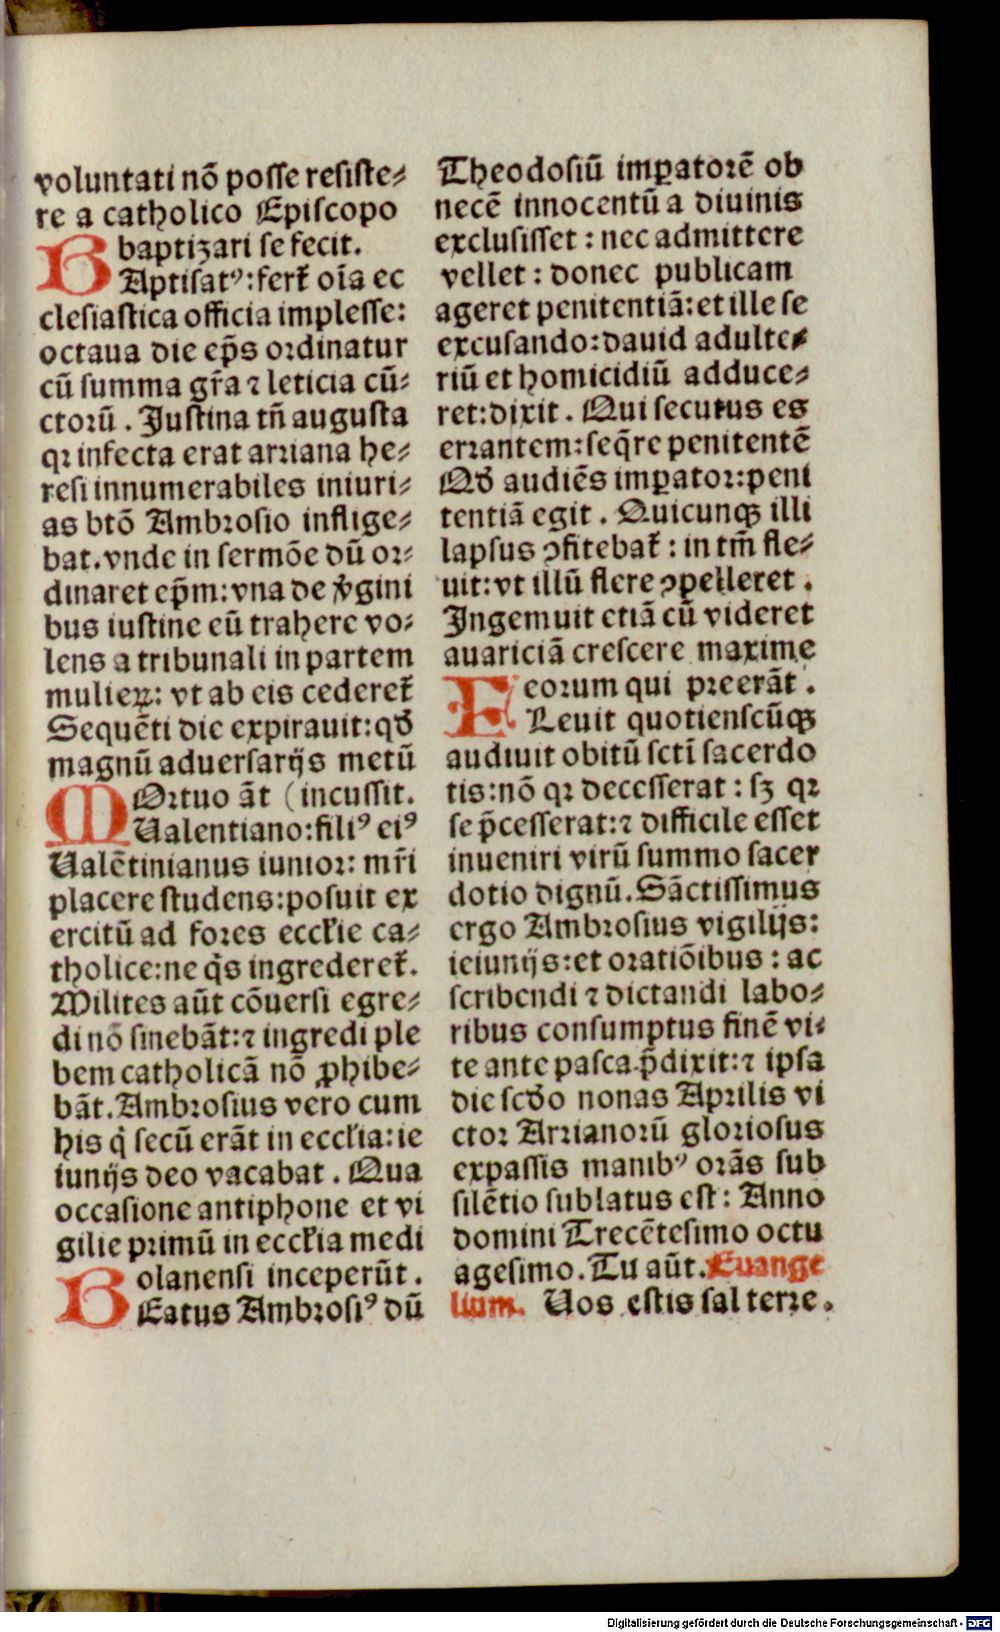 voluntati nō posse resiste⸗
re a catholico Episcopo
baptizari se fecit.
BAptisatꝰ: fert̄ oīa ec
clesiastica officia implesse:
octaua die ep̄s ordinatur
cū summa gr̄a ⁊ leticia cū⸗
ctorū . Justina tn̄ augusta
qꝛ infecta erat arriana he⸗
resi innumerabiles iniuri⸗
as btō Ambrosio inflige⸗
bat. vnde in sermōe dū or⸗
dinaret ep̄m: vna de v̓gini
bus iustine eū trahere vo⸗
lens a tribunali in partem
mulieꝝ: vt ab eis cederet̄
Sequēti die expirauit: qđ
magnū aduersarijs metū
MOrtuo āt (incussit.
Ualentiano: filiꝰ eiꝰ
Ualētinianus iunior: mr̄i
placere studens: posuit ex
ercitū ad fores eccl̄ie ca⸗
tholice: ne q̇s ingrederet̄.
Milites aūt cōuersi egre⸗
di nō sinebāt: ⁊ ingredi ple
bem catholicā nō ꝓhibe⸗
bāt. Ambrosius vero cum
his q̇ secū erāt in eccl̄ia: ie
iunijs deo vacabat . Qua
occasione antiphone et vi
gilie primū in eccl̄ia medi
olanensi inceperūt .
BEatus Ambrosiꝰ dū
Theodosiū imꝑatorē ob
necē innocentū a diuinis
exclusisset : nec admittere
vellet : donec publicam
ageret penitentiā: et ille se
excusando: dauid adulte⸗
riū et homicidiū adduce⸗
ret: dixit . Qui secutus es
errantem: seq̄re penitentē
Qđ audiēs imꝑator: peni
tentiā egit . Quicunqꝫ illi
lapsus ꝯfitebat̄ : in tm̄ fle⸗
uit: vt illū flere ꝯpelleret .
Ingemuit etiā cū videret
auariciā crescere maxime
eorum qui preerāt .
FLeuit quotienscūqꝫ
audiuit obitū sctī sacerdo
tis: nō qꝛ decesserat : sꝫ qꝛ
se p̄cesserat: ⁊ difficile esset
inueniri virū summo sacer
dotio dignū. Sāctissimus
ergo Ambrosius vigilijs:
ieiunijs: et oratiōibus : ac
scribendi ⁊ dictandi labo⸗
ribus consumptus finē vi⸗
te ante pasca p̄dixit: ⁊ ipsa
die scđo nonas Aprilis vi
ctor Arrianorū gloriosus
expassis manibꝰ orās sub
silētio sublatus est : Anno
domini Trecētesimo octu
agesimo. Tu aūt. Euange
lium. Uos estis sal terre.
Digitalisierung gefördert durch die Deutsche Forschungsgemeinschaft - DFG